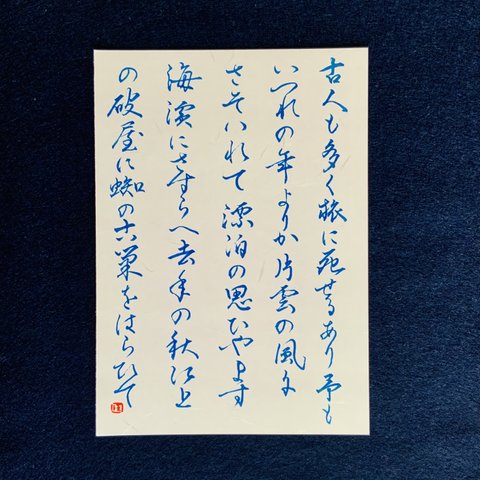 古人も多く旅に死せるあり予も
いつれの年よりか片雲の風に
さそハれて漂泊の思ひやます
海濱にさすらへ去年の秋江上
の破屋に蜘の古巣をはらひて